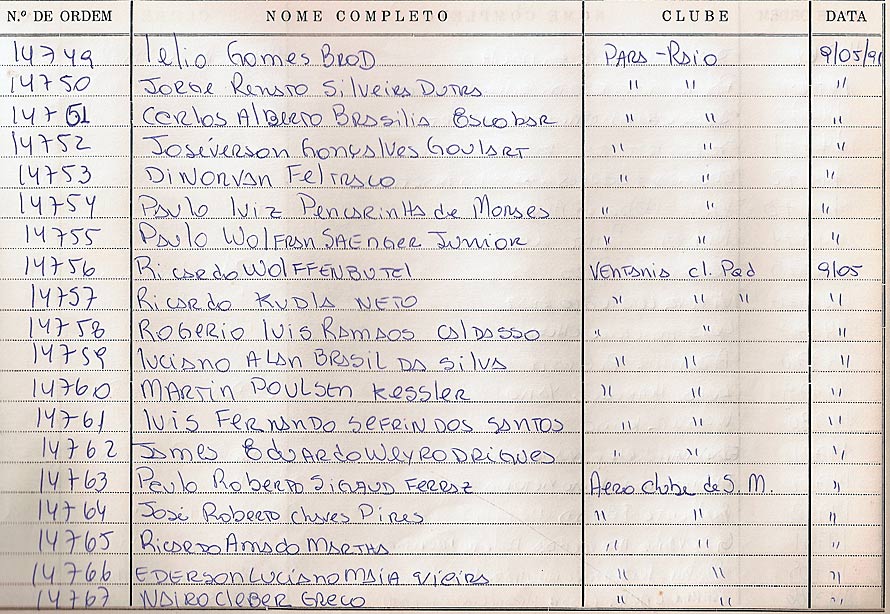 N.º DE ORDEM NOME COMPLETO CLUBE DATA
14749 Lelio Gomes BROD PARA-RAIO 9/05/91
14750 JORGE RENATO SILVEIRA DUTRA " " "
14751 CARLOS ALBERTO BRASILIA ESCOBAR " " "
14752 JOSEVERSON GONÇALVES GOULART " " "
14753 DINORVAN FELTRACO " " "
14754 PAULO LUIZ PENCARINHA de MORAES " " "
14755 PAULO WOLFRAN SAENGER JUNIOR " " "
14756 RICARDO WOLFFENBUTEL VENTANIA cl. Pqd 9/05
14757 RICARDO KUDLA NETO " " " "
14758 ROGERIO LUIS RAMAOS CALDASSO " " "
14759 LUCIANO ALAN BRASIL DA SILVA " " "
14760 MARTIN POULSEN KESSLER " " "
14761 LUIS FERNANDO SEFRIN DOS SANTOS " " "
14762 JAMES EDUARDO WEY RODRIGUES " " "
14763 PAULO ROBERTO SIGAUD FERRAZ Aero Clube de S. M. "
14764 JOSÉ ROBERTO CHAVES PIRES " " "
14765 RICARDO AMADO MARTHA " " "
14766 EDERSON LUCIANO MAIA VIEIRA " " "
14767 NAIRO CLEBER GRECO " " "